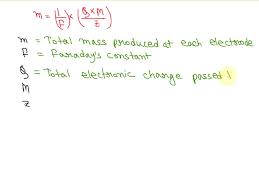 m = (1/F) × (Q × M / z)
m = Total mass produced at each electrode
F = Faraday's constant
Q = Total electronic charge passed
M
z